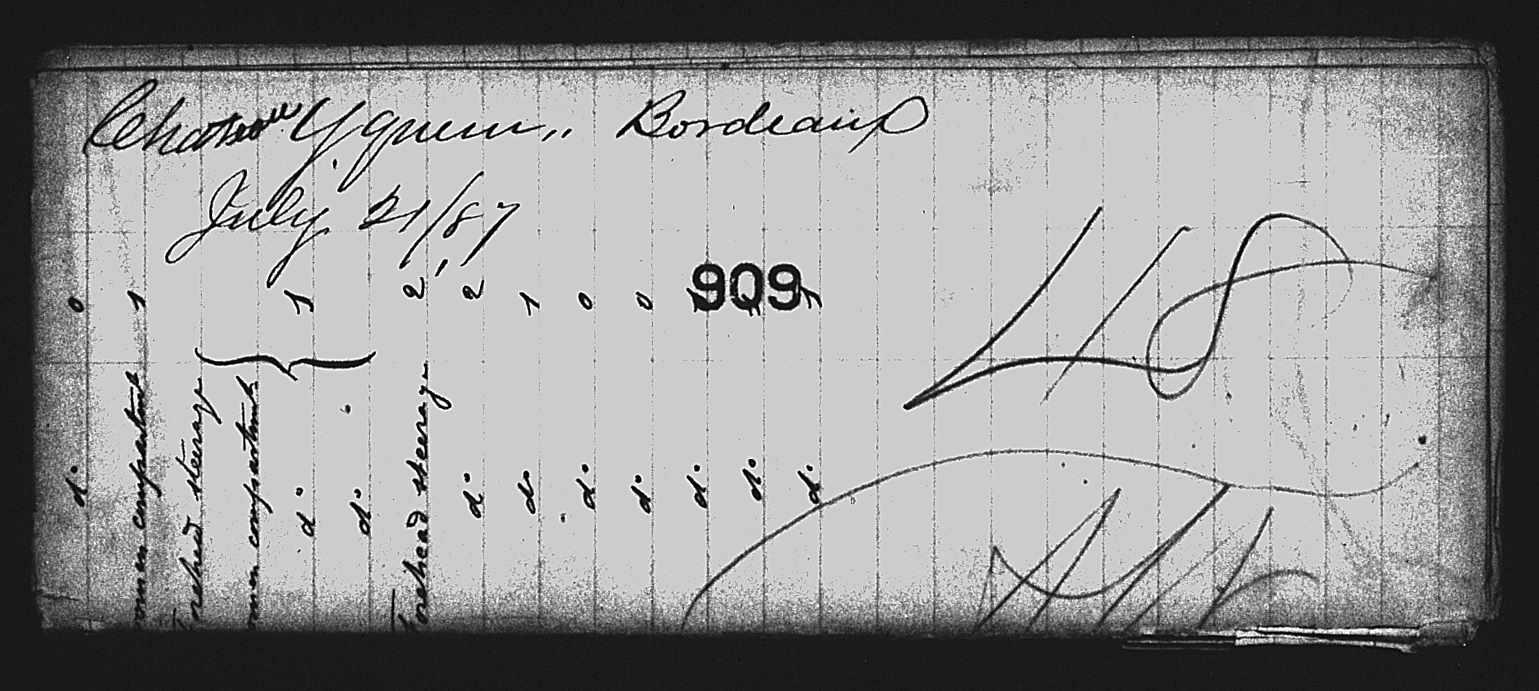 Chateau Yquem,, Bordeaux
July 21/87
909
48
do 0
women compartment 1
Forehead steerage
women compartment
do 1
do
Forehead steerage 2
do 2
do 1
do 0
do 0
do 1
do 1
do 1